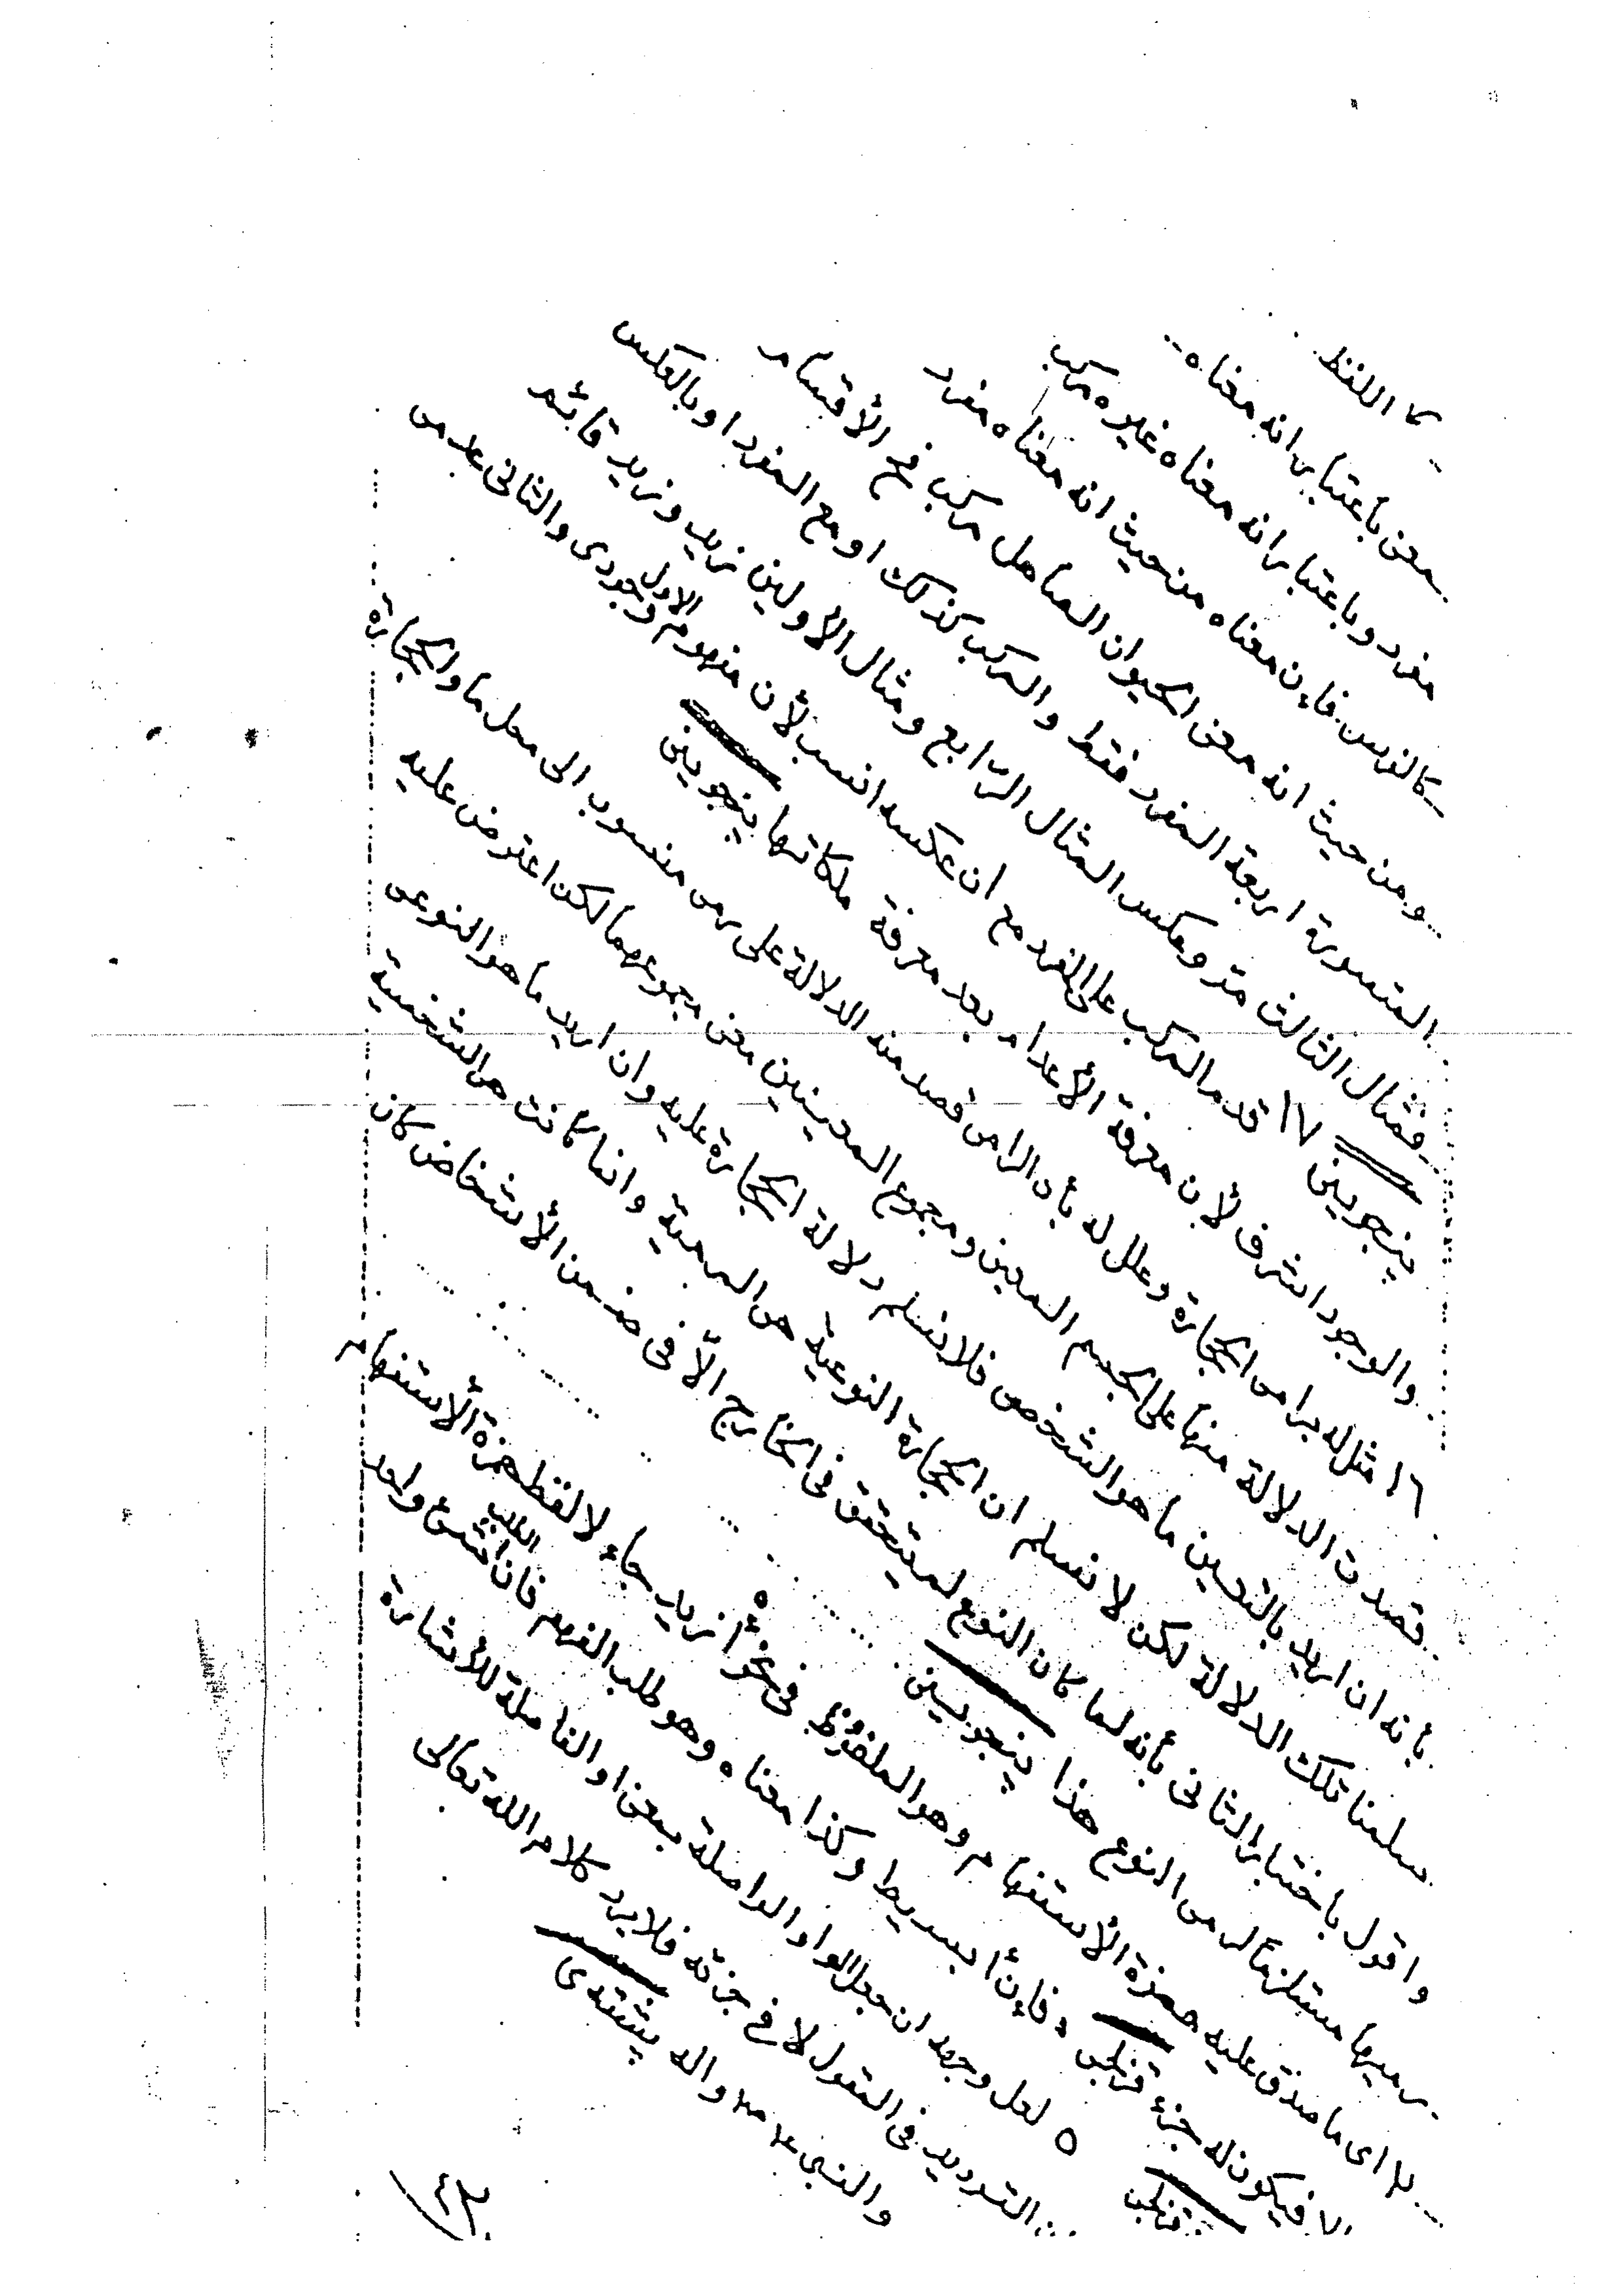 كا اللفظ
معنى باعتبار انه معناه
مفرد و باعتبار انه معناه غيره مركب
كالزيدين فان معناه من حيث انه معناه مفرد
ومن حيث انه معنى الحيوان الماهل مركب فح الأقسام
المتصورة اربعة المفرد فقط والمركب كذلك او مع المفرد او بالعكس
فمثال الثالث مر وعكس المثال الرابع ومثال الأولين زيد و زيد قائم
پنجوينى ١٧ قدم المركب على المفرد مع ان عكسه انسب لأن مفهوم الاول وجودى والثانى عدمى
والوجود اشرف لأن معرفة الأعدام بعد معرفة ملكاتها پنجوينى
١٦ مثل له برامى الحجارة وعلل له بأن الرامى قصد منه الدلالة على رمى منسوب الى محل ما والحجارة
قصدت الدلالة منها على الجسم المعين ومجموع المعنيين معنى مجموعهما لكن اعترض عليه
بأنه ان اريد بالتعين ما هو الشخصى فلا نسلم دلالة الحجارة عليه وان اريد ما هو النوعى
سلمنا تلك الدلالة لكن لا نسلم ان الحجارة النوعية هى المرمية وانما كانت هى الشخصية
واقول باختيار الثانى بأنه لما كان النوع لم يتحقق فى الخارج الا فى ضمن الأشخاص كان
رميها مستلزما لرمى النوع هذا پنجوينى
٢ اى ما صدق عليه همزة الأستفهام وهو الملفوظ فى نحو أزيد جاء لا لفظ همزة الأستفهام
الا فيكون له جزء قزلجى ٥ فان أ بسيط وكذا معناه وهو طلب الفهم فان الطلب شئ واحد
قزلجى ٥ لعل وجهه ان جعل الواو الواصلة بمعنى او الفاصلة للأشارة
الترديد فى المقول لا فى جزئه فلا يرد كلام الله تعالى
والنبى عدمه واله پشتدى
٤٣